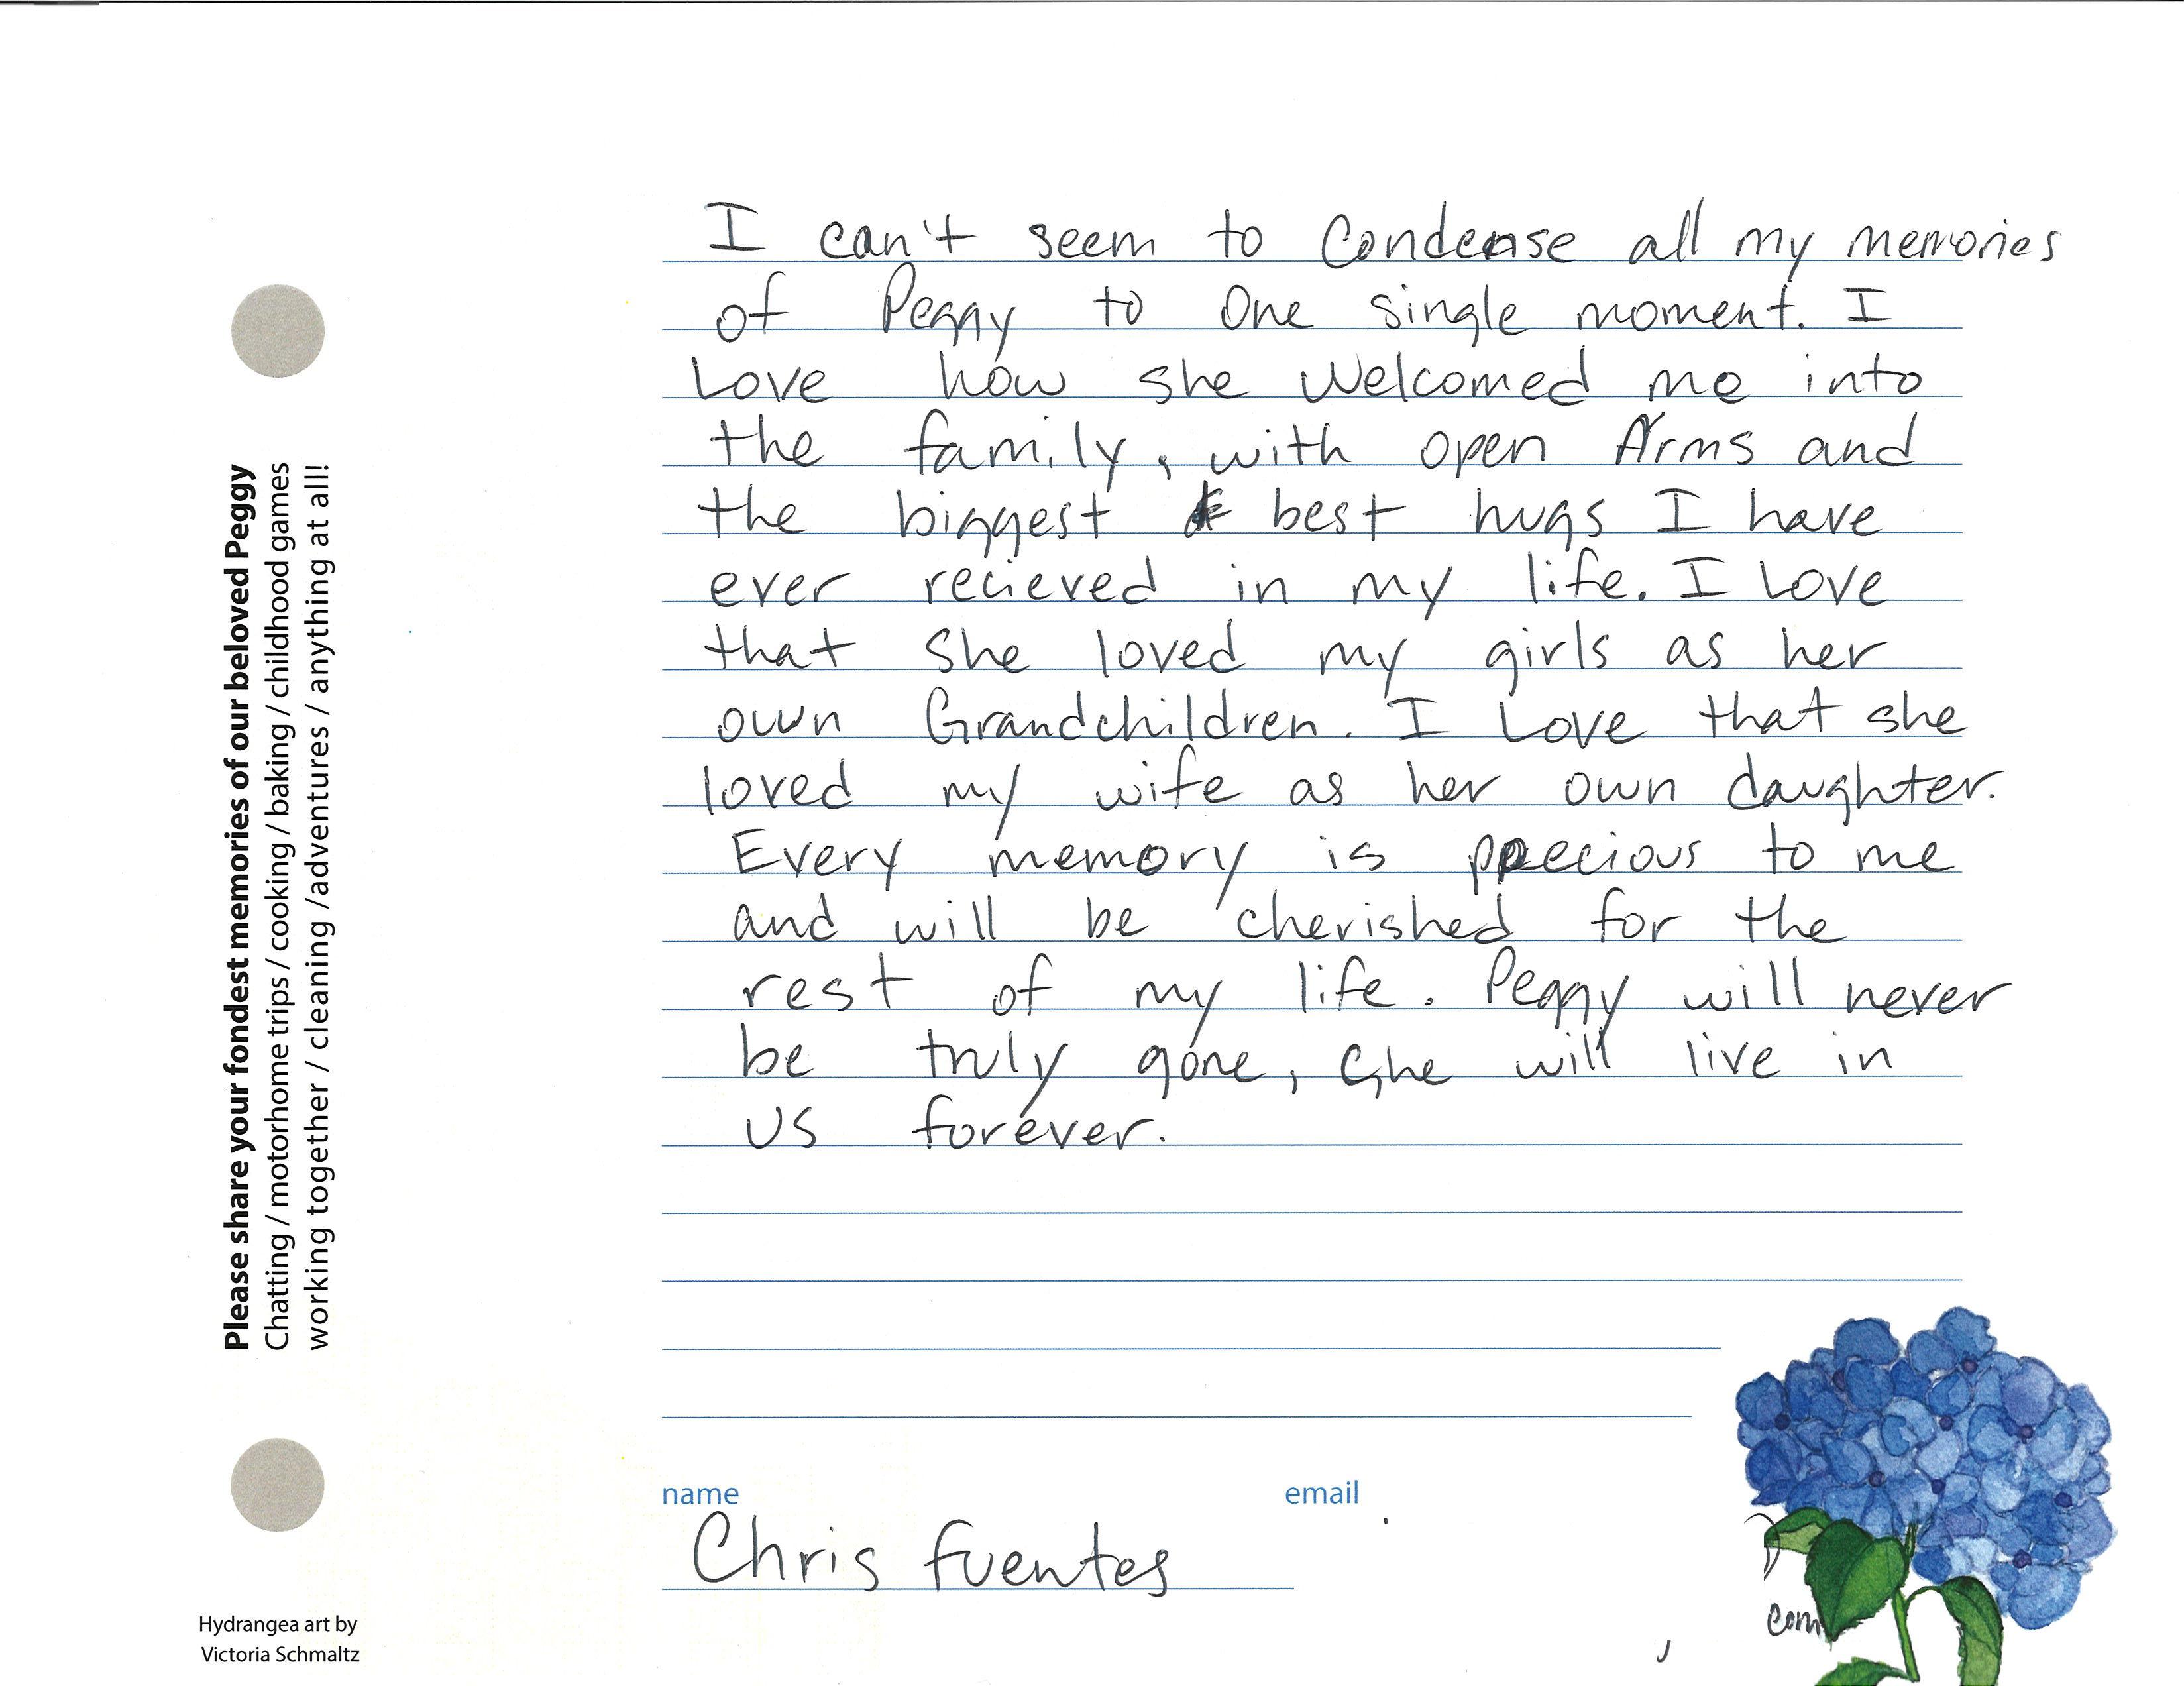 Please share your fondest memories of our beloved Peggy
Chatting / motorhome trips / cooking / baking / childhood games
working together / cleaning /adventures / anything at all!
I can't seem to Condense all my memories
of Peggy to One single moment. I
Love how she Welcomed me into
the family, with open Arms and
the biggest & best hugs I have
ever recieved in my life. I Love
that she loved my girls as her
own Grandchildren. I Love that she
loved my wife as her own daughter.
Every memory is precious to me
and will be cherished for the
rest of my life. Peggy will never
be truly gone, She will live in
us forever.
name
email
Chris Fuentes
com
Hydrangea art by
Victoria Schmaltz